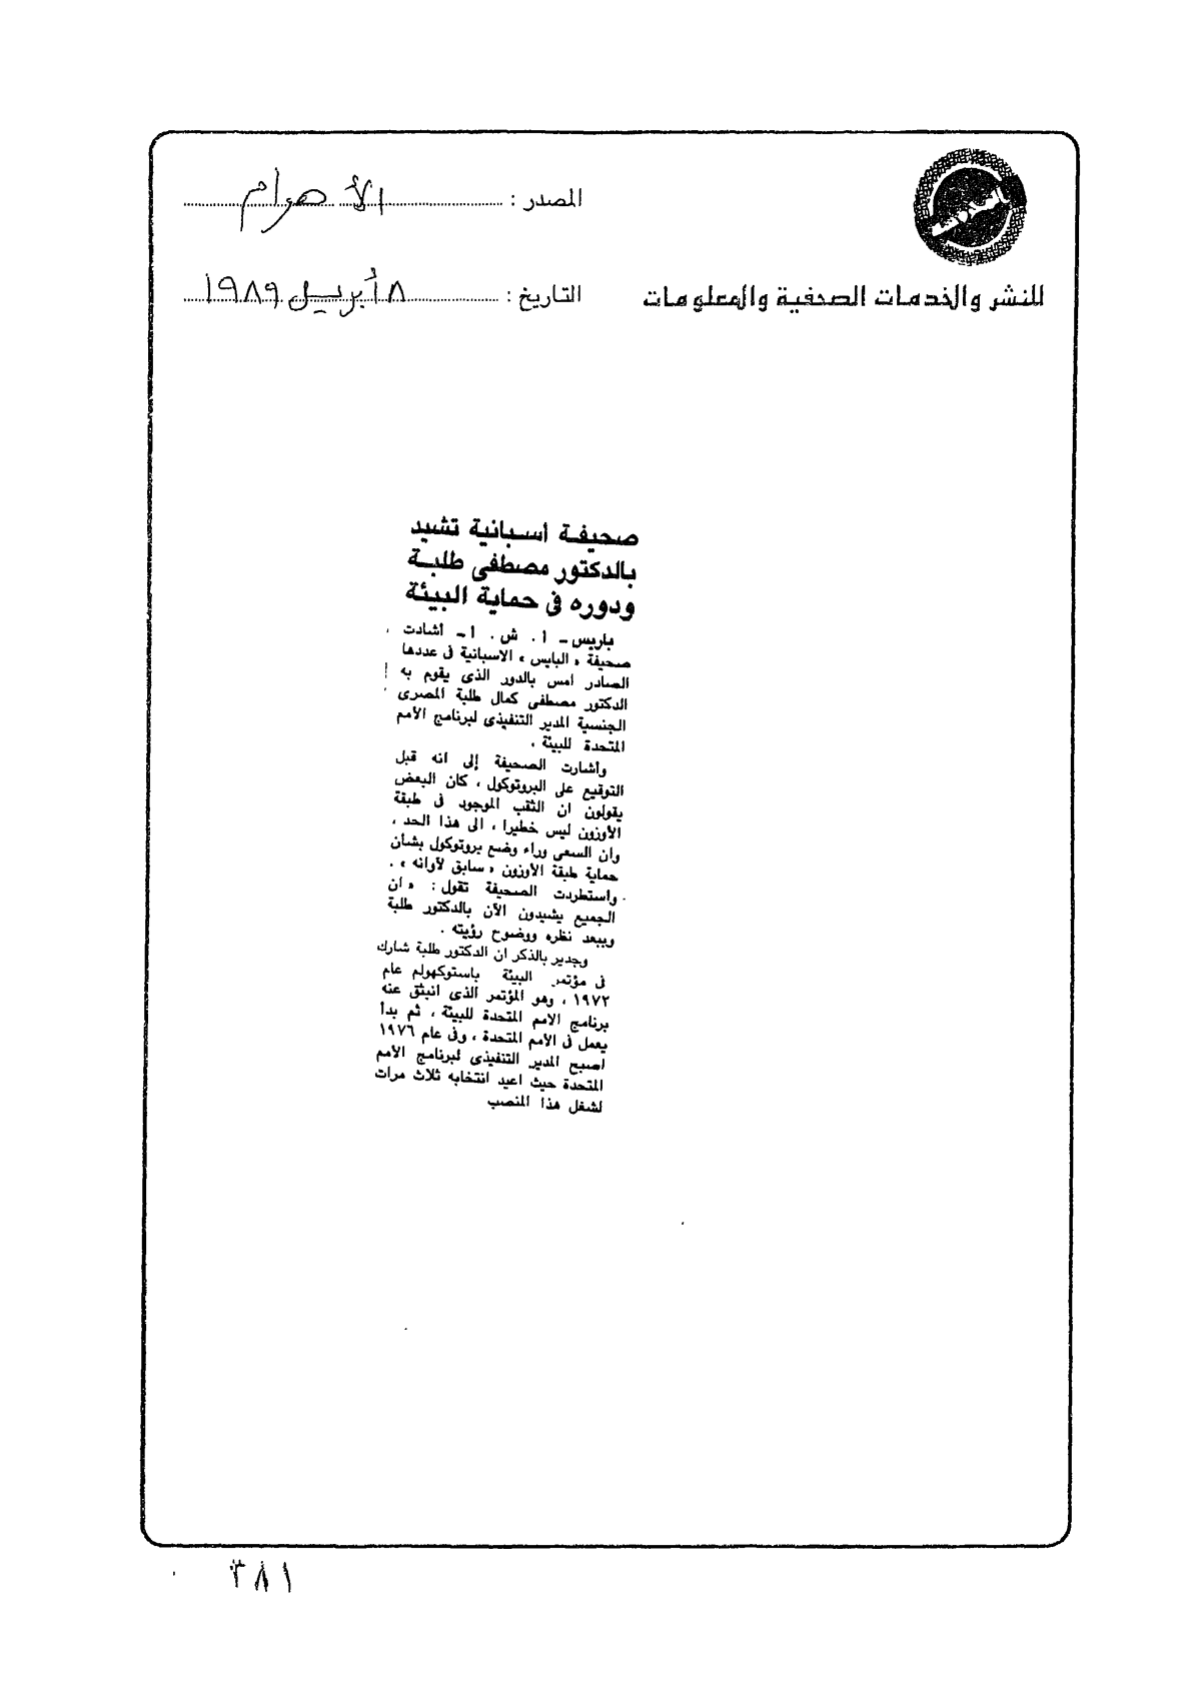 المصدر : الأهرام
للنشر والخدمات الصحفية والمعلومات
التاريخ : ٨ أبريل ١٩٨٩
صحيفة اسبانية تشيد
بالدكتور مصطفى طلبة
ودوره فى حماية البيئة
باريس ـ أ . ش . أ ـ أشادت
صحيفة « البايس » الاسبانية فى عددها
الصادر امس بالدور الذى يقوم به
الدكتور مصطفى كمال طلبة المصرى
الجنسية المدير التنفيذى لبرنامج الأمم
المتحدة للبيئة .
وأشارت الصحيفة إلى انه قبل
التوقيع على البروتوكول ، كان البعض
يقولون ان الثقب الموجود فى طبقة
الأوزون ليس خطيرا ، الى هذا الحد ،
وان السعى وراء وضع بروتوكول بشأن
حماية طبقة الأوزون « سابق لآوانه » .
واستطردت الصحيفة تقول : « ان
الجميع يشيدون الآن بالدكتور طلبة
وببعد نظره ووضوح رؤيته .
وجدير بالذكر ان الدكتور طلبة شارك
فى مؤتمر البيئة باستوكهولم عام
١٩٧٢ ، وهو المؤتمر الذى انبثق عنه
برنامج الامم المتحدة للبيئة ، ثم بدأ
يعمل فى الأمم المتحدة ، وفى عام ١٩٧٦
اصبح المدير التنفيذى لبرنامج الأمم
المتحدة حيث اعيد انتخابه ثلاث مرات
لشغل هذا المنصب
٣٨١